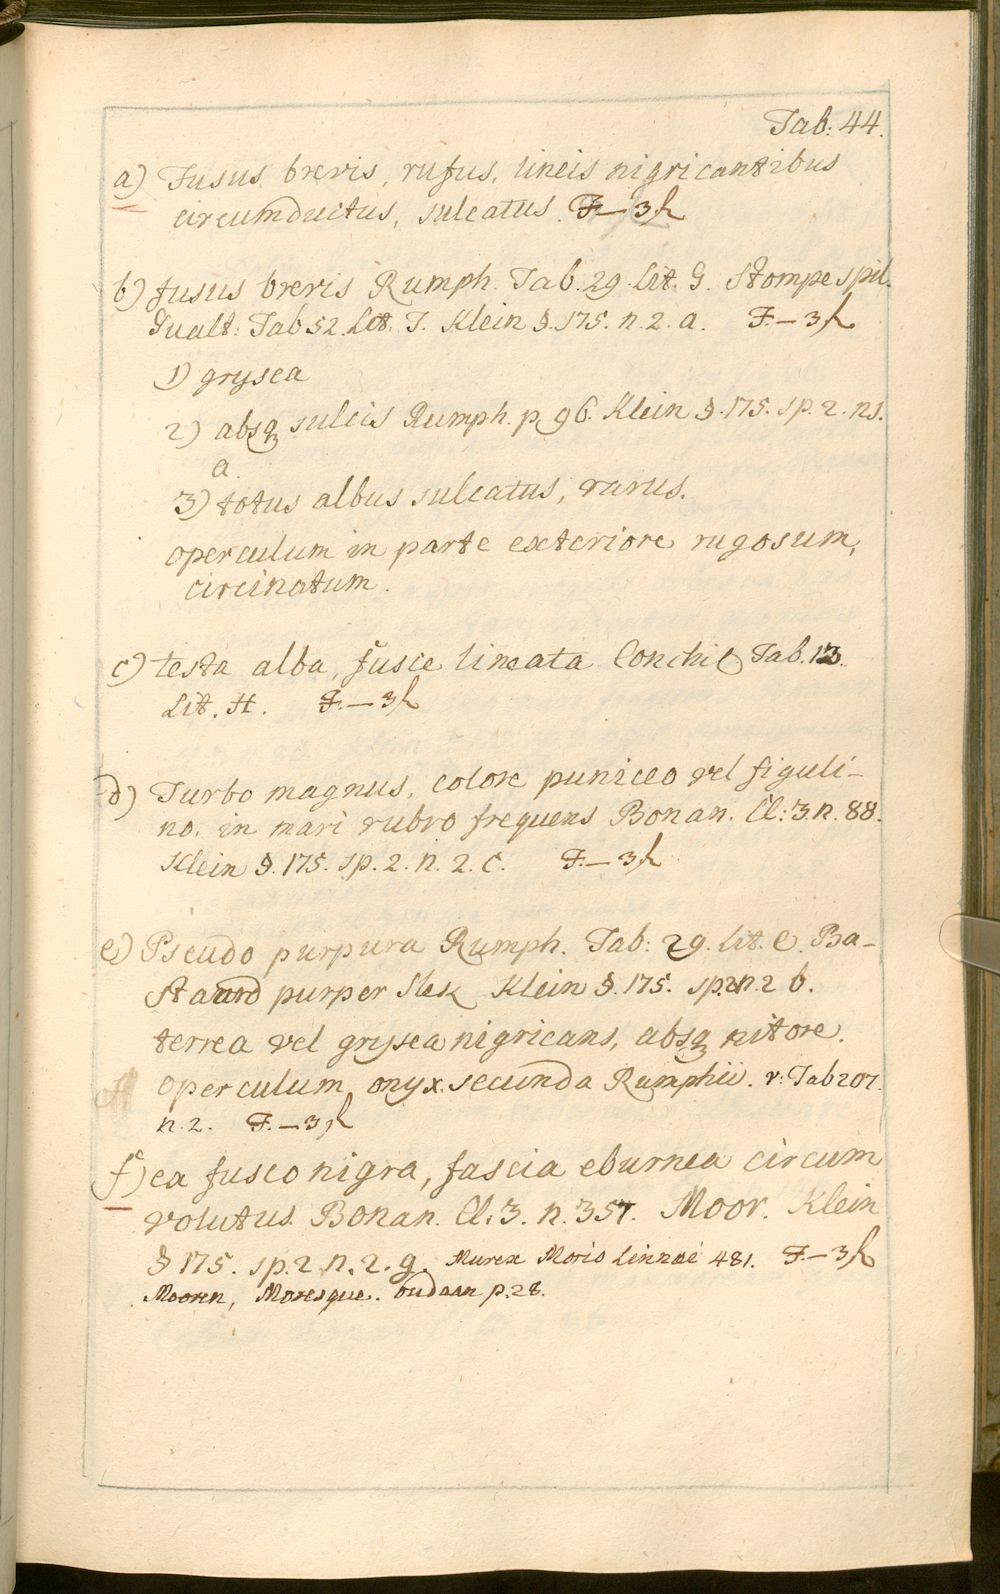 Tab: 44.
a) Fusus brevis, rufus, lineis nigricantibus
circumductus, sulcatus. F. — 3 h
b) fusus brevis Rumph. Tab. 29. Lit. G. Stompe spil.
Gualt: Tab 52. Lit. T. Klein §. 175. n. 2. a. F. — 3 h
1) grysea
2) absq sulcis Rumph. p. 96. Klein §. 175. sp. 2. n 1.
a.
3) totus albus sulcatus, rarus.
operculum in parte exteriore rugosum,
circinatum.
c) testa alba, fusce lineata Conchil Tab. 13.
Lit. H. F. — 3 h
d) Turbo magnus, colore puniceo vel figuli-
no. in mari rubro frequens Bonan. Cl: 3. n. 88.
Klein §. 175. sp. 2. n. 2. c. F. — 3 h
e) Pseudo purpura Rumph. Tab: 29. lit. e. Ba-
staard purper slek Klein §. 175. sp. 2 n. 2 b.
terrea vel grysea nigricans, absq nitore.
operculum, onyx secunda Rumphii. v: Tab 207.
n. 2. F. — 3 h
f) ea fusco nigra, fascia eburnea circum
volutus. Bonan. Cl: 3. n. 357. Moor. Klein
§ 175. sp. 2 n. 2. g. Murex Morio Linnaei 481. F. — 3 h
Mooren, Moresque. oudaan p. 28.